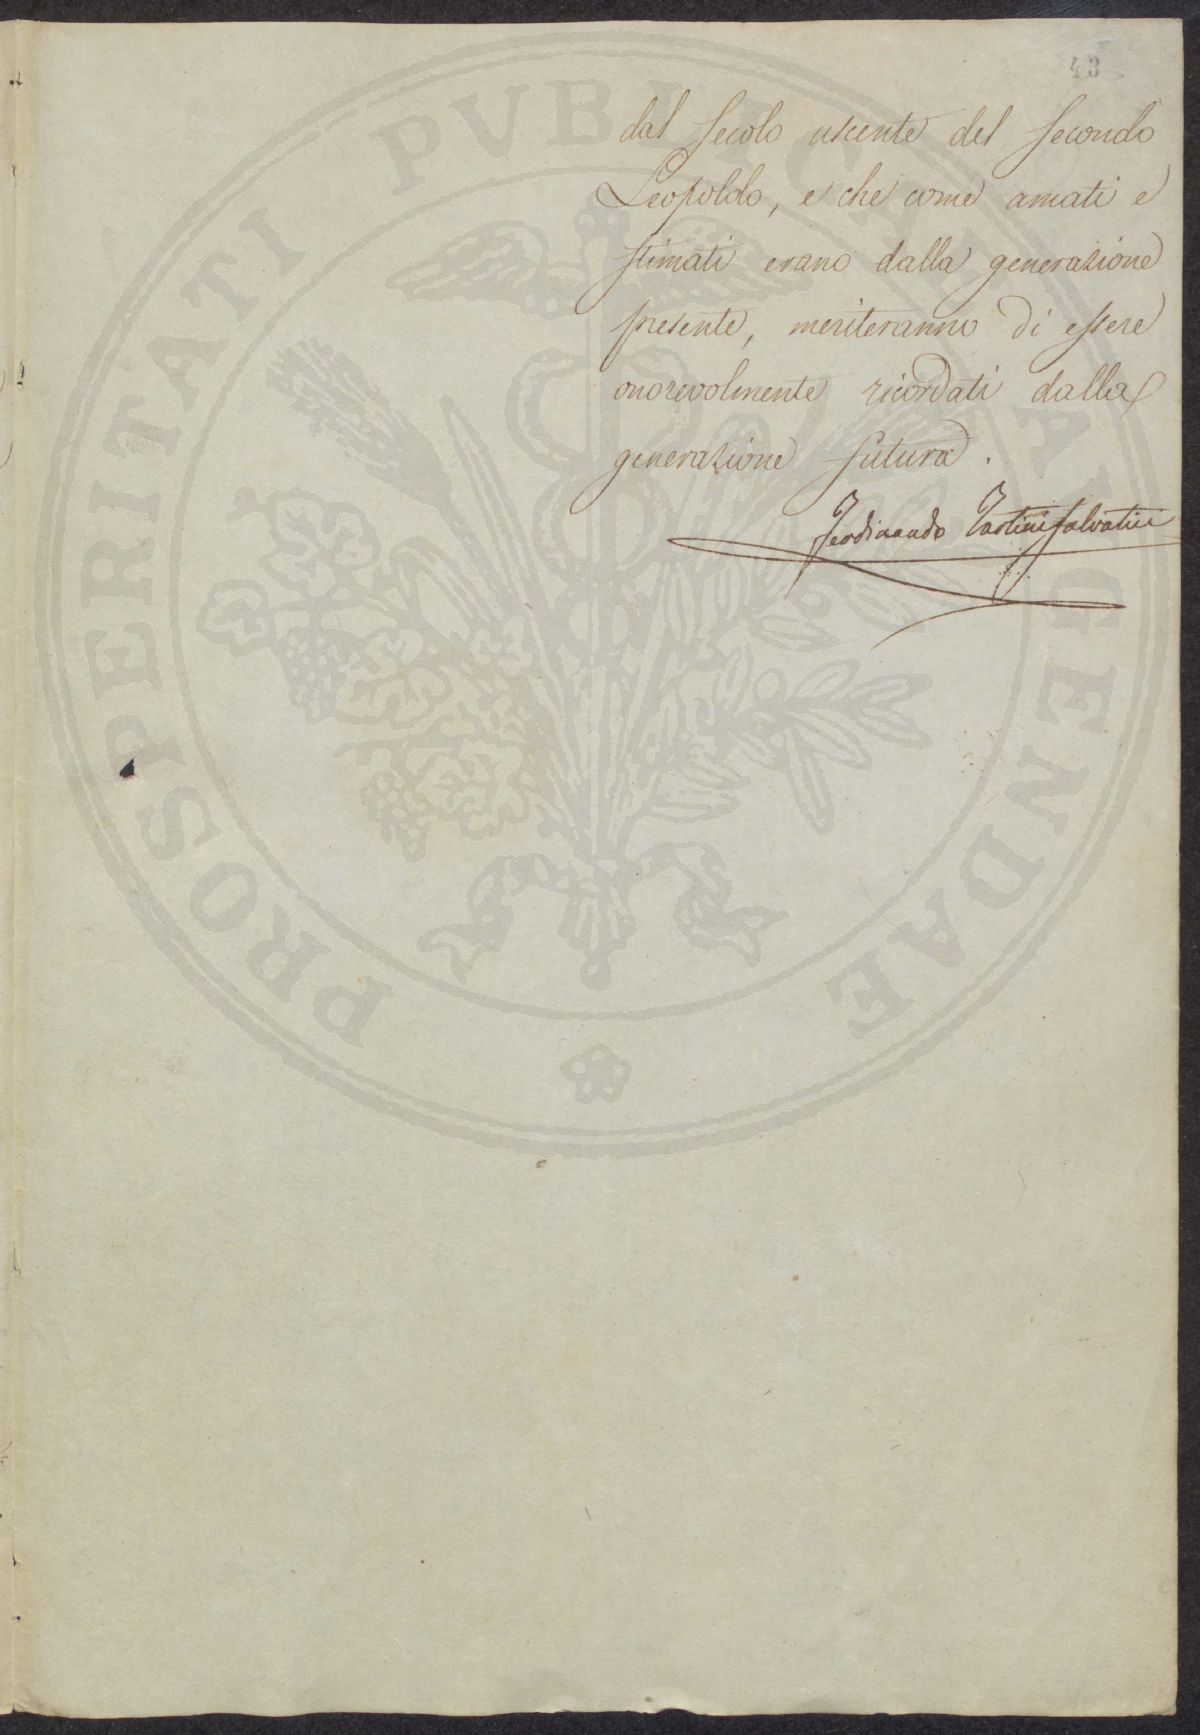 43
dal Secolo uscente del Secondo
Leopoldo, e che come amati e
stimati erano dalla generazione
presente, meriteranno di essere
onorevolmente ricordati dalla
generazione futura.
Ferdinando Tartini Salvatici
PROSPERITATI PVBLICAE AVGENDAE